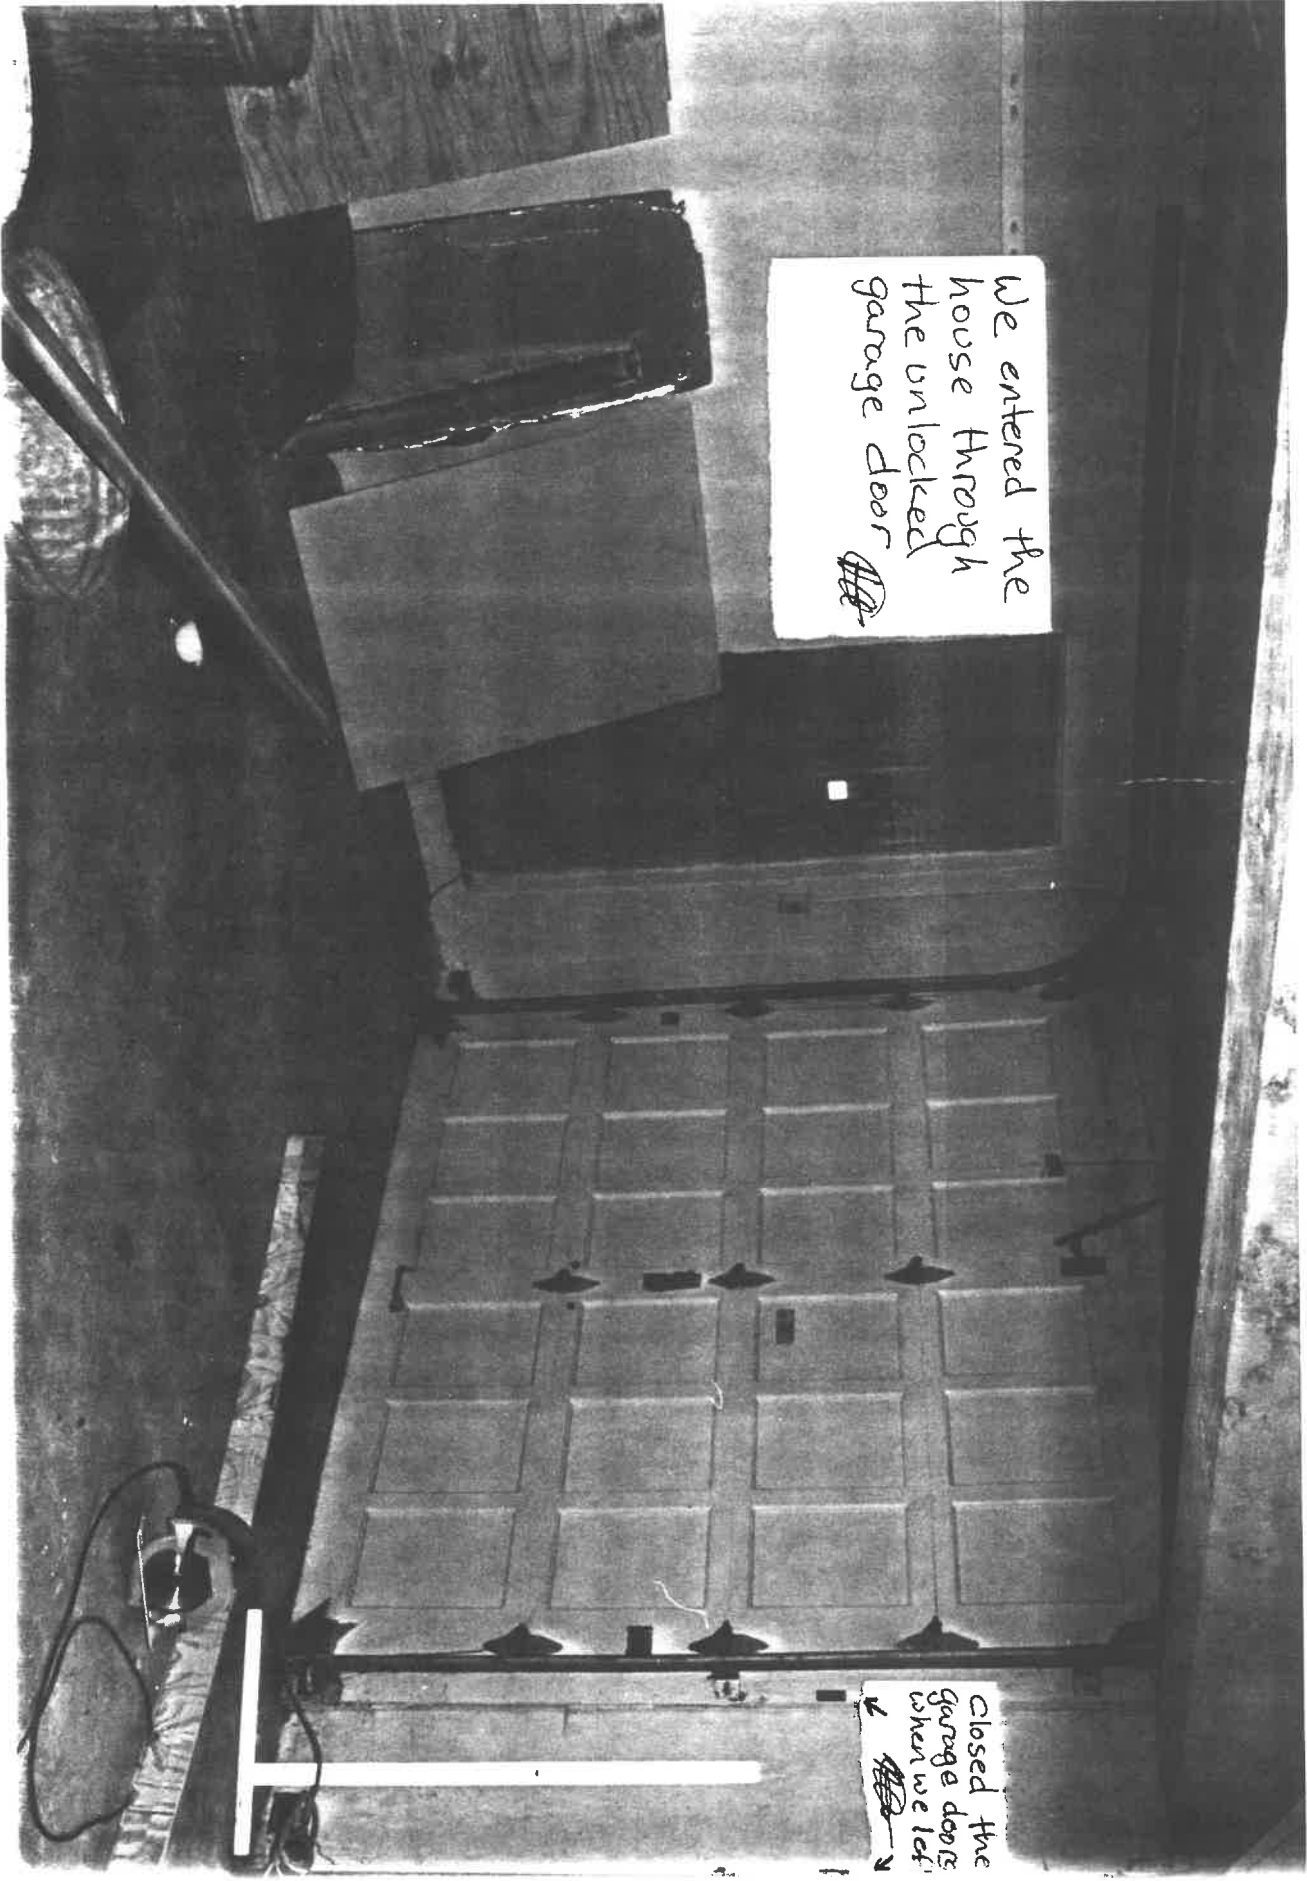 We entered the
house through
the unlocked
garage door
Closed the
garage doors
when we left